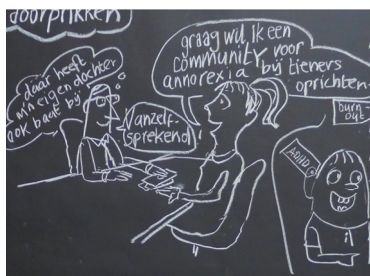 doorprikken
daar heeft
m'n eigen dochter
ook baat bij
vanzelf-
sprekend
graag wil ik een
community voor
bij tieners
annorexia
oprichten
burn
out
ADHD